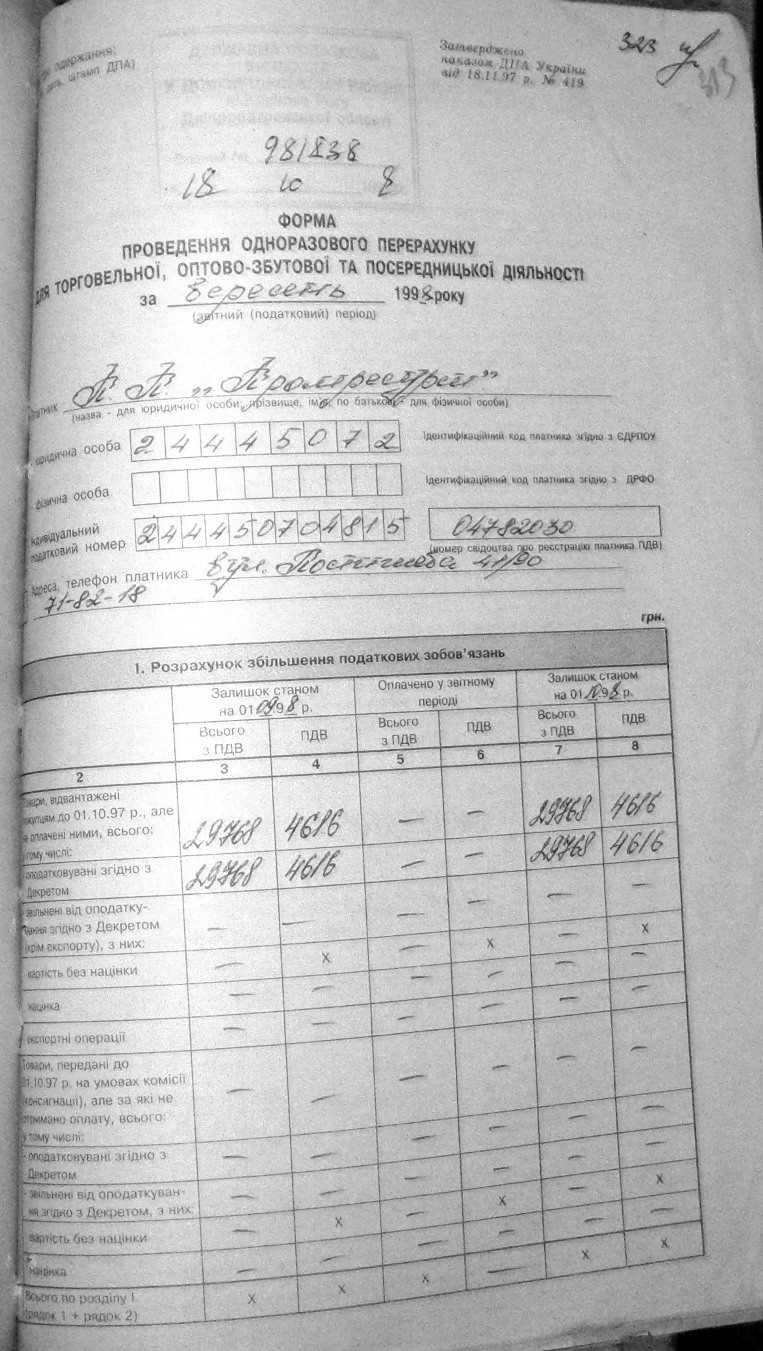 одержання;
штамп ДПА)
ДЕРЖАВНА ПОДАТКОВА
Дніпропетровської області
Затверджено
наказом ДПА України
від 18.11.97 р. № 419
323
313
981838
18 10 8
ФОРМА
ПРОВЕДЕННЯ ОДНОРАЗОВОГО ПЕРЕРАХУНКУ
ДЛЯ ТОРГОВЕЛЬНОЇ, ОПТОВО-ЗБУТОВОЇ ТА ПОСЕРЕДНИЦЬКОЇ ДІЯЛЬНОСТІ
за вересень 1998 року
(звітний (податковий) період)
Платник П. П. „
(назва - для юридичної особи; прізвище, ім'я, по батькові - для фізичної особи)
юридична особа 24445072 Ідентифікаційний код платника згідно з ЄДРПОУ
фізична особа Ідентифікаційний код платника згідно з ДРФО
індивідуальний
податковий номер 244450704815 04782030
(номер свідоцтва про реєстрацію платника ПДВ)
Адреса, телефон платника вул. Постишева 41/90
71-82-18
грн.
І. Розрахунок збільшення податкових зобов'язань
Залишок станом на 01.09.98 р. Оплачено у звітному періоді Залишок станом на 01.10.98 р.
Всього з ПДВ ПДВ Всього з ПДВ ПДВ Всього з ПДВ ПДВ
2 3 4 5 6 7 8
Товари, відвантажені
покупцям до 01.10.97 р., але
не оплачені ними, всього:
у тому числі: 29768 4616 — — 29768 4616
- оподатковувані згідно з
Декретом 29768 4616 — — 29768 4616
- звільнені від оподатку-
вання згідно з Декретом
(крім експорту), з них: — — — — — —
вартість без націнки — X — X — X
націнка — — — — — —
експортні операції — — — — — —
Товари, передані до
01.10.97 р. на умовах комісії
(консигнації), але за які не
отримано оплату, всього:
у тому числі: — — — — — —
- оподатковувані згідно з
Декретом — — — — — —
- звільнені від оподаткуван-
ня згідно з Декретом, з них: — — — — — —
вартість без націнки — X — X — X
націнка — — — — — —
Всього по розділу I
(рядок 1 + рядок 2) X X X — X X